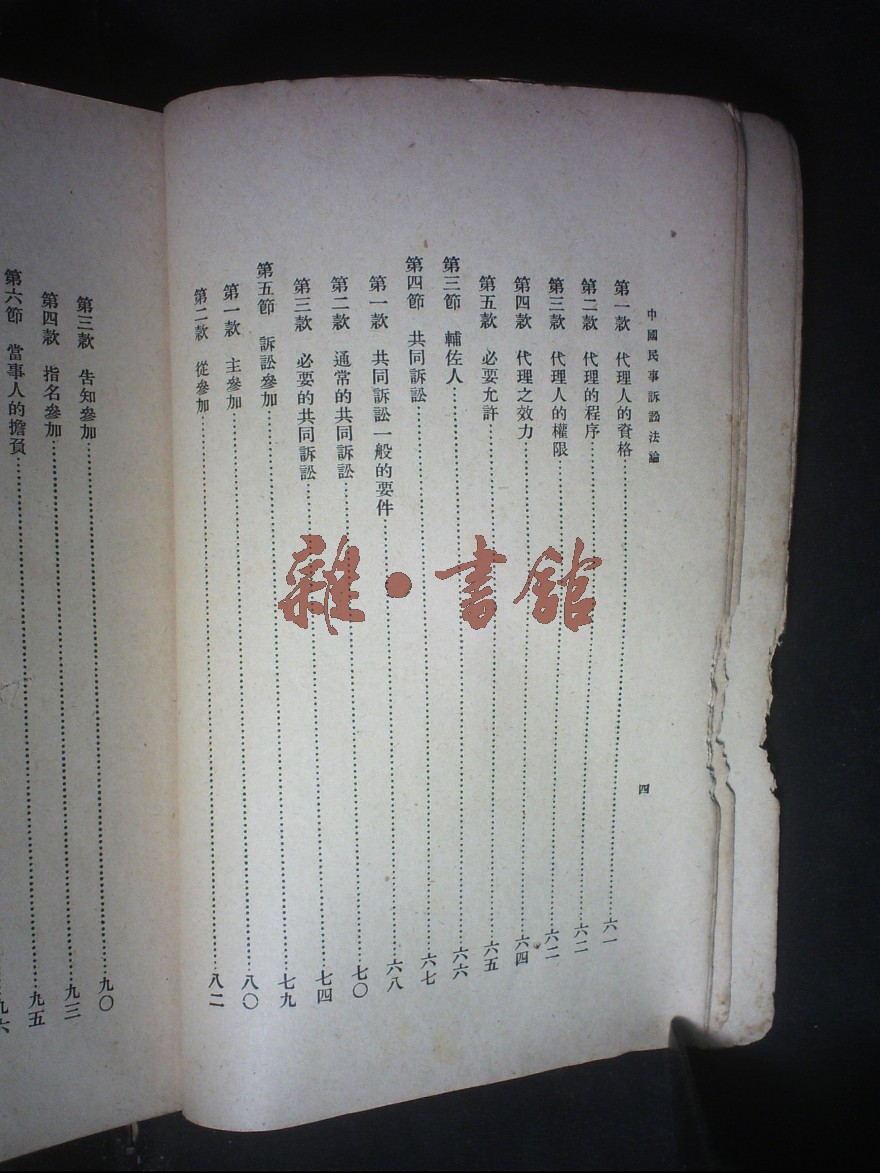 中國民事訴訟法論
四
第一款 代理人的資格……六一
第二款 代理的程序……六二
第三款 代理人的權限……六二
第四款 代理之效力……六四
第五款 必要允許……六五
第三節 輔佐人……六六
第四節 共同訴訟……六七
第一款 共同訴訟一般的要件……六八
第二款 通常的共同訴訟……七〇
第三款 必要的共同訴訟……七四
第五節 訴訟參加……七九
第一款 主參加……八〇
第二款 從參加……八二
第三款 告知參加……九〇
第四款 指名參加……九三
第六節 當事人的擔負……九五
九六
雜·書館